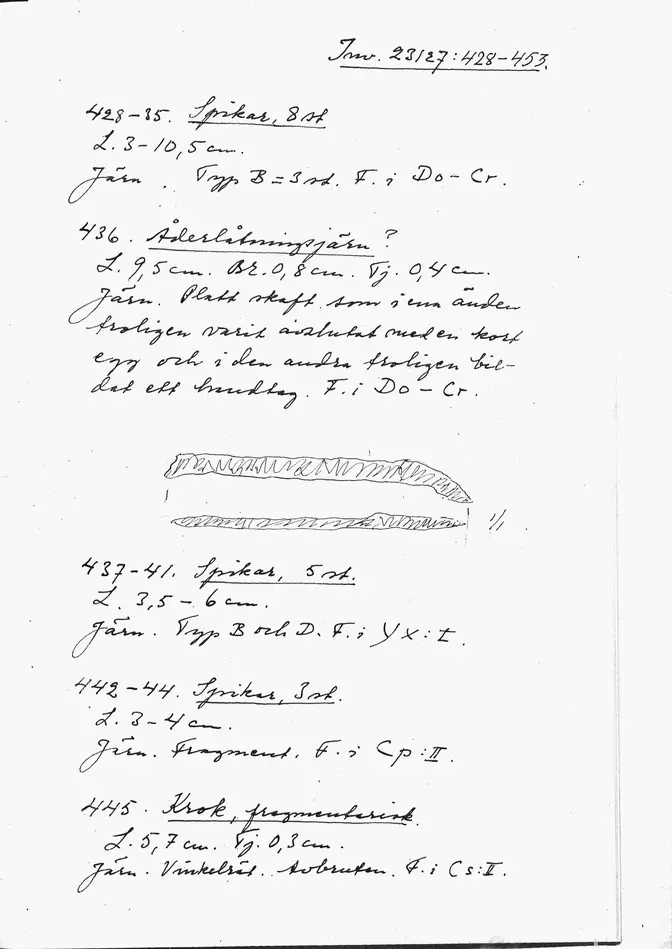 Inv. 23127:428-453.
428-35. Spikar, 8 st
L. 3-10,5 cm.
Järn. Typ B = 3 st. F. i Do-Cr.
436. Åderlåtningsjärn?
L. 9,5 cm. Br. 0,8 cm. Tj. 0,4 cm.
Järn. Platt skaft som i ena änden
troligen varit avslutat med en kort
egg och i den andra troligen bil-
dat ett handtag. F. i Do-Cr.
1/1
437-41. Spikar, 5 st.
L. 3,5-6 cm.
Järn. Typ B och D. F. i Yx:I.
442-44. Spikar, 3 st.
L. 3-4 cm.
Järn. Fragment. F. i Cp:II.
445. Krok, fragmentarisk.
L. 5,7 cm. Tj. 0,3 cm.
Järn. Vinkelrät. Avbruten. F. i Cs:II.